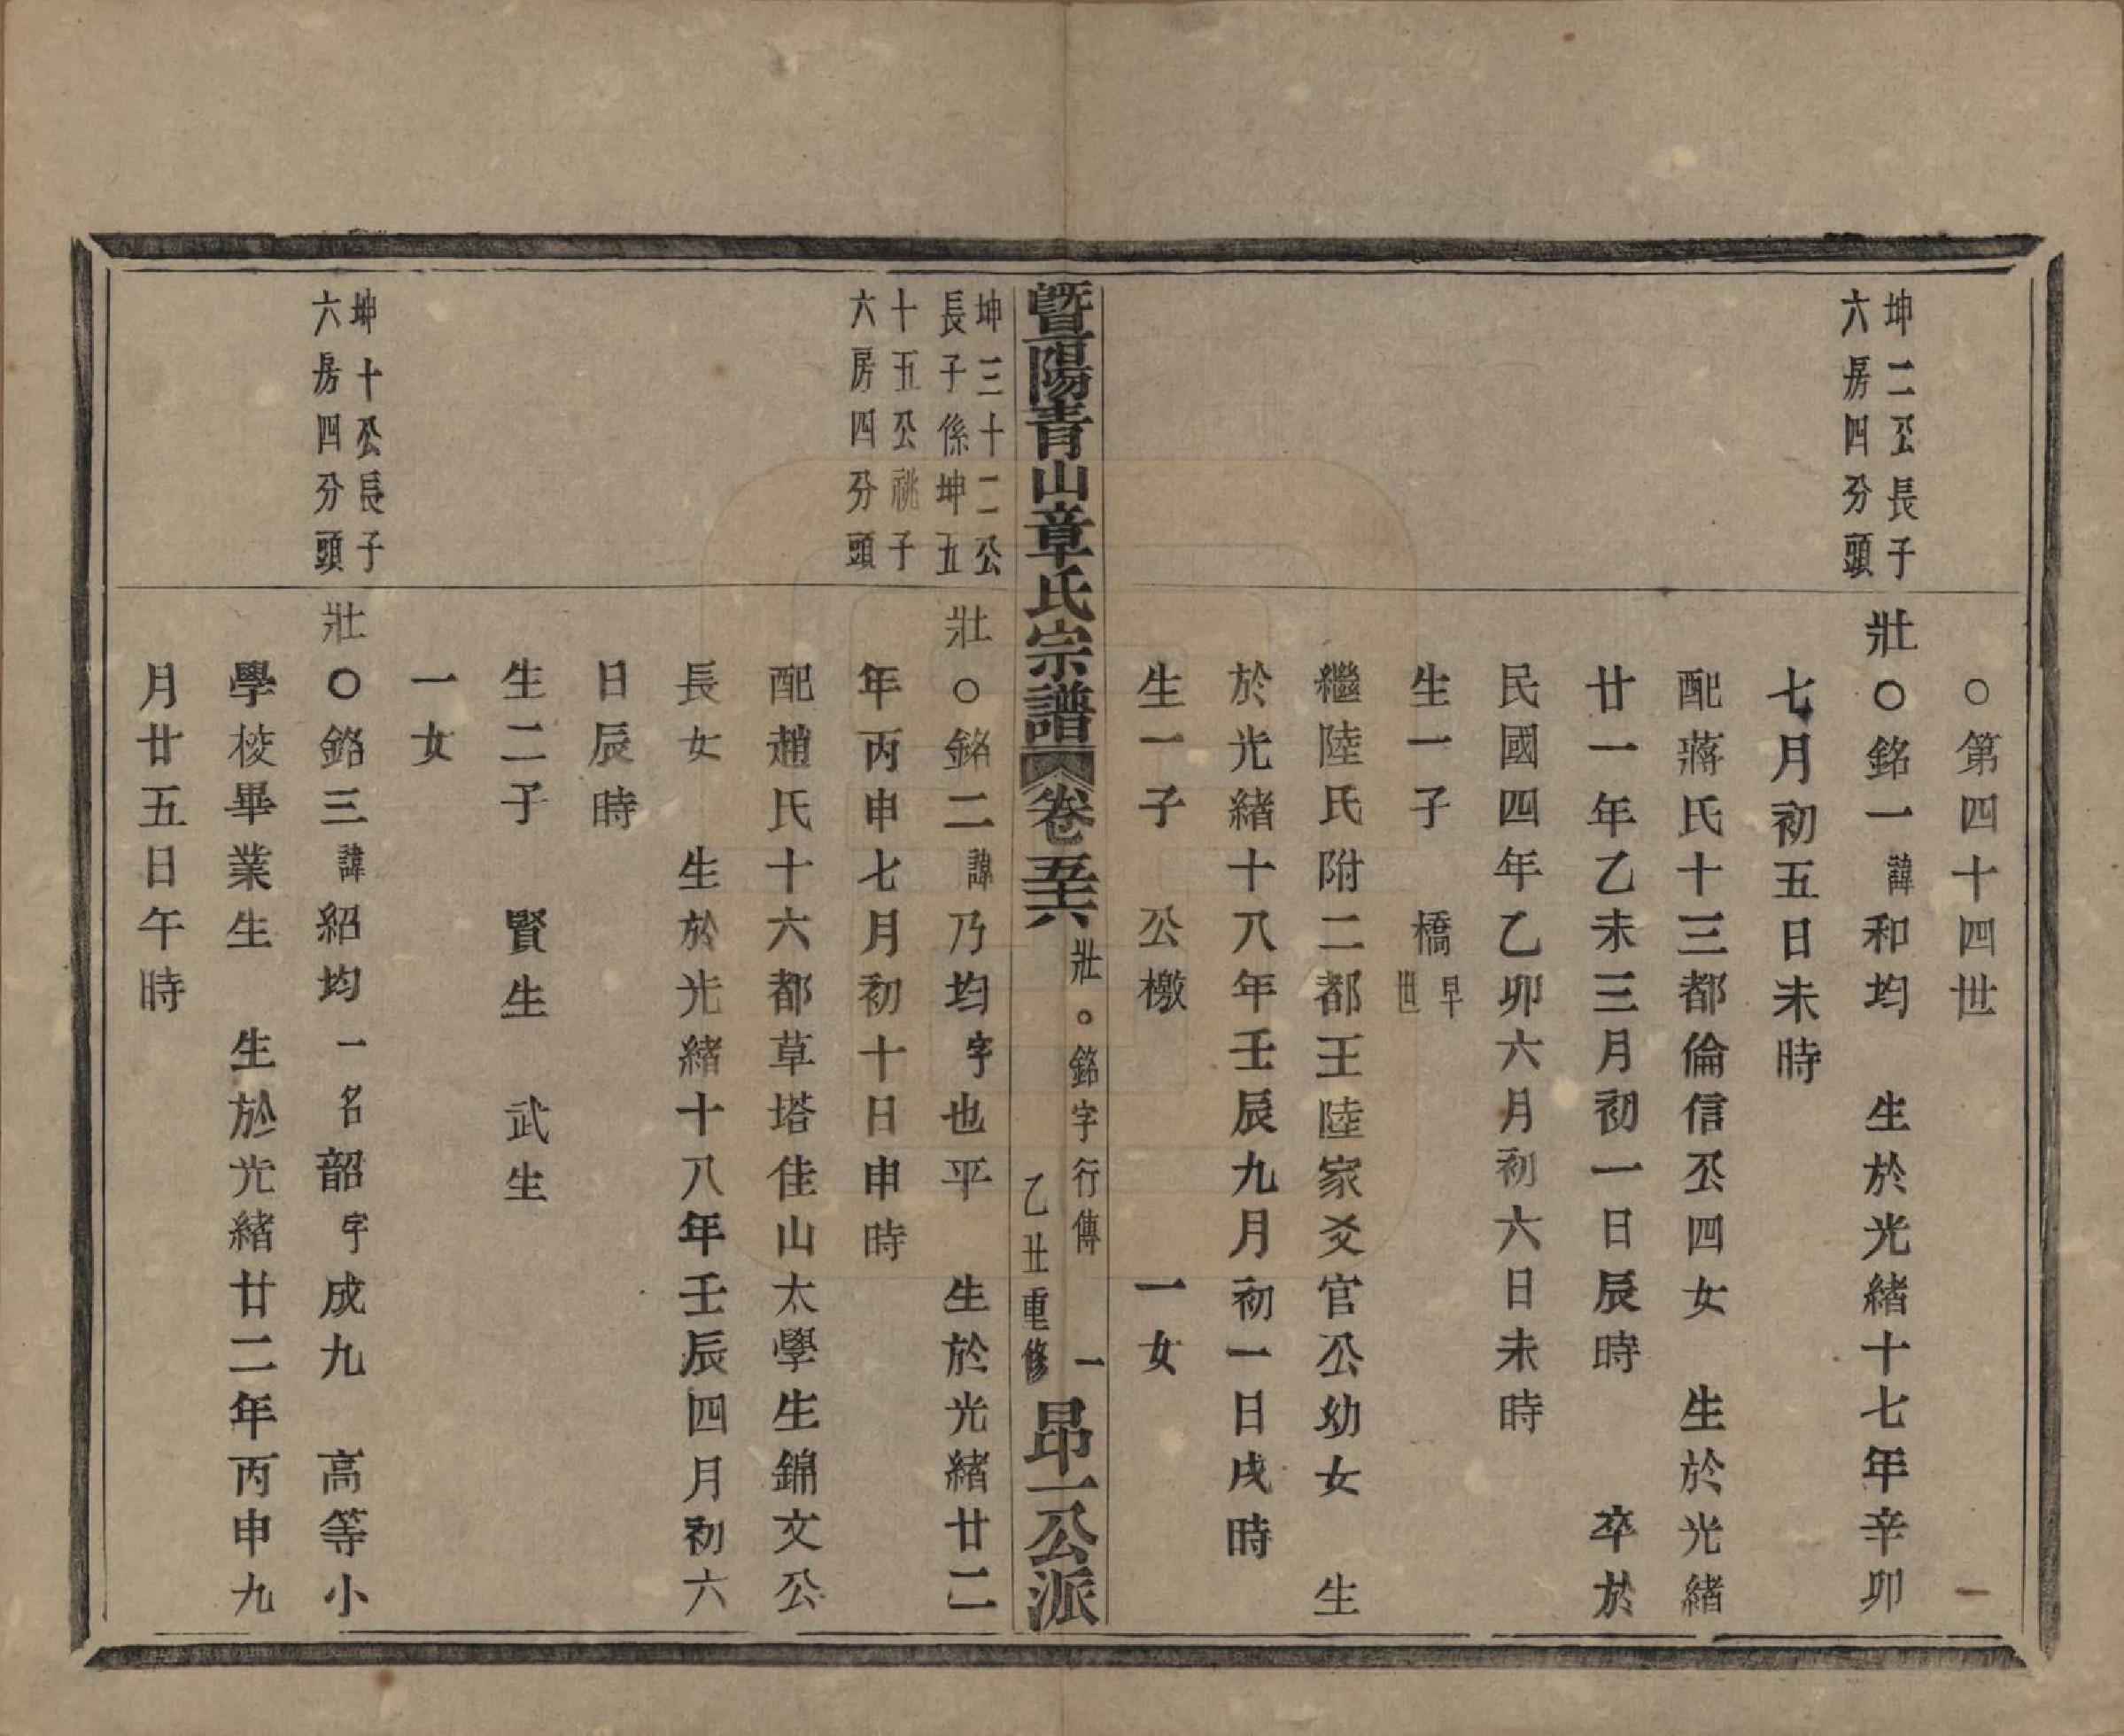 ○第四十四世
坤二公長子
六房四分頭
壯○銘一諱和均　生於光緒十七年辛卯
七月初五日未時
配蔣氏十三都倫信公四女　生於光緒
廿一年乙未三月初一日辰時　卒於
民國四年乙卯六月初六日未時
生一子　橋早世
繼陸氏附二都王陸家爻官公幼女　生
於光緒十八年壬辰九月初一日戌時
生一子　公檄　一女
暨陽青山章氏宗譜　卷五六　壯○銘字行傳　一　乙丑重修　昂一公派
坤三十二公
長子係坤五
十五公祧子
六房四分頭
壯○銘二諱乃均字也平　生於光緒廿二
年丙申七月初十日申時
配趙氏十六都草塔佳山太學生錦文公
長女　生於光緒十八年壬辰四月初六
日辰時
生二子　賢生　武生
一女
坤十公長子
六房四分頭
壯○銘三諱紹均一名韶字成九　高等小
學校畢業生　生於光緒廿二年丙申九
月廿五日午時